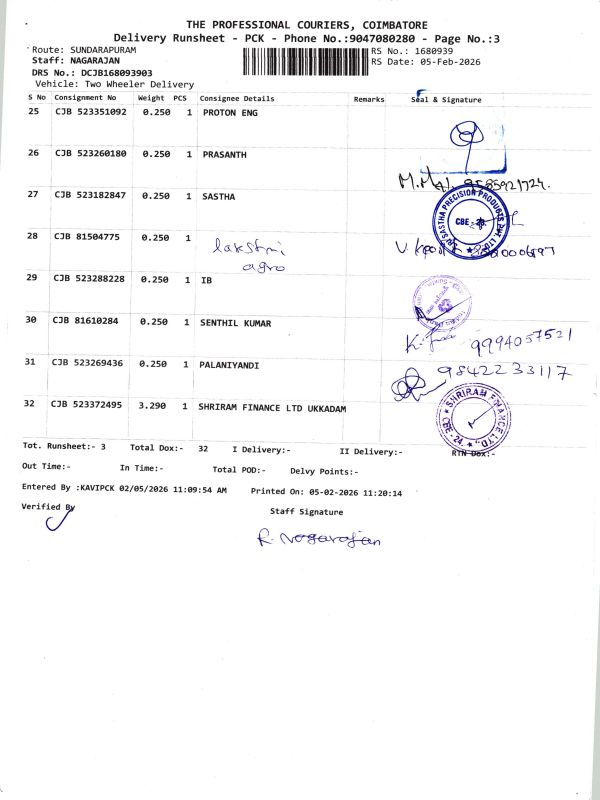 THE PROFESSIONAL COURIERS, COIMBATORE
Delivery Runsheet - PCK - Phone No.:9047080280 - Page No.:3
Route: SUNDARAPURAM
RS No.: 1680939
Staff: NAGARAJAN
RS Date: 05-Feb-2026
DRS No.: DCJB168093903
Vehicle: Two Wheeler Delivery
S No Consignment No Weight PCS Consignee Details Remarks Seal & Signature
25 CJB 523351092 0.250 1 PROTON ENG
26 CJB 523260180 0.250 1 PRASANTH
27 CJB 523182847 0.250 1 SASTHA
SASTHA PRECISION PRODUCTS PVT. LTD.
28 CJB 81504775 0.250 1 lakshmi
agro
29 CJB 523288228 0.250 1 IB
30 CJB 81610284 0.250 1 SENTHIL KUMAR
9994057521
31 CJB 523269436 0.250 1 PALANIYANDI
9842233117
32 CJB 523372495 3.290 1 SHRIRAM FINANCE LTD UKKADAM
SHRIRAM FINANCE LTD. CBE-24.
Tot. Runsheet:- 3 Total Dox:- 32 I Delivery:- II Delivery:- RTN Dox:-
Out Time:- In Time:- Total POD:- Delvy Points:-
Entered By :KAVIPCK 02/05/2026 11:09:54 AM Printed On: 05-02-2026 11:20:14
Verified By
Staff Signature
R. Nagarajan